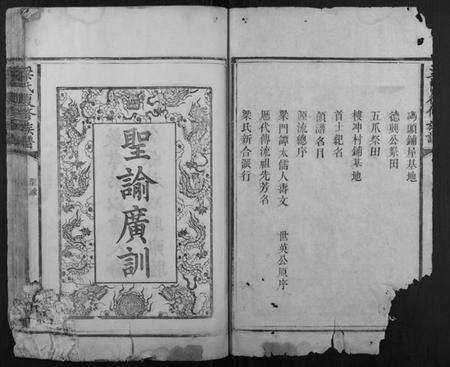 馮頭鋪屋基地
德興公祭田
五爪祭田
樓冲村鋪基地
首士紀名
領譜名目
源流總序
梁門譚太孺人壽文 世英公原序
歷代傳流祖先芳名
梁氏新合派行
聖諭廣訓
梁氏
族譜